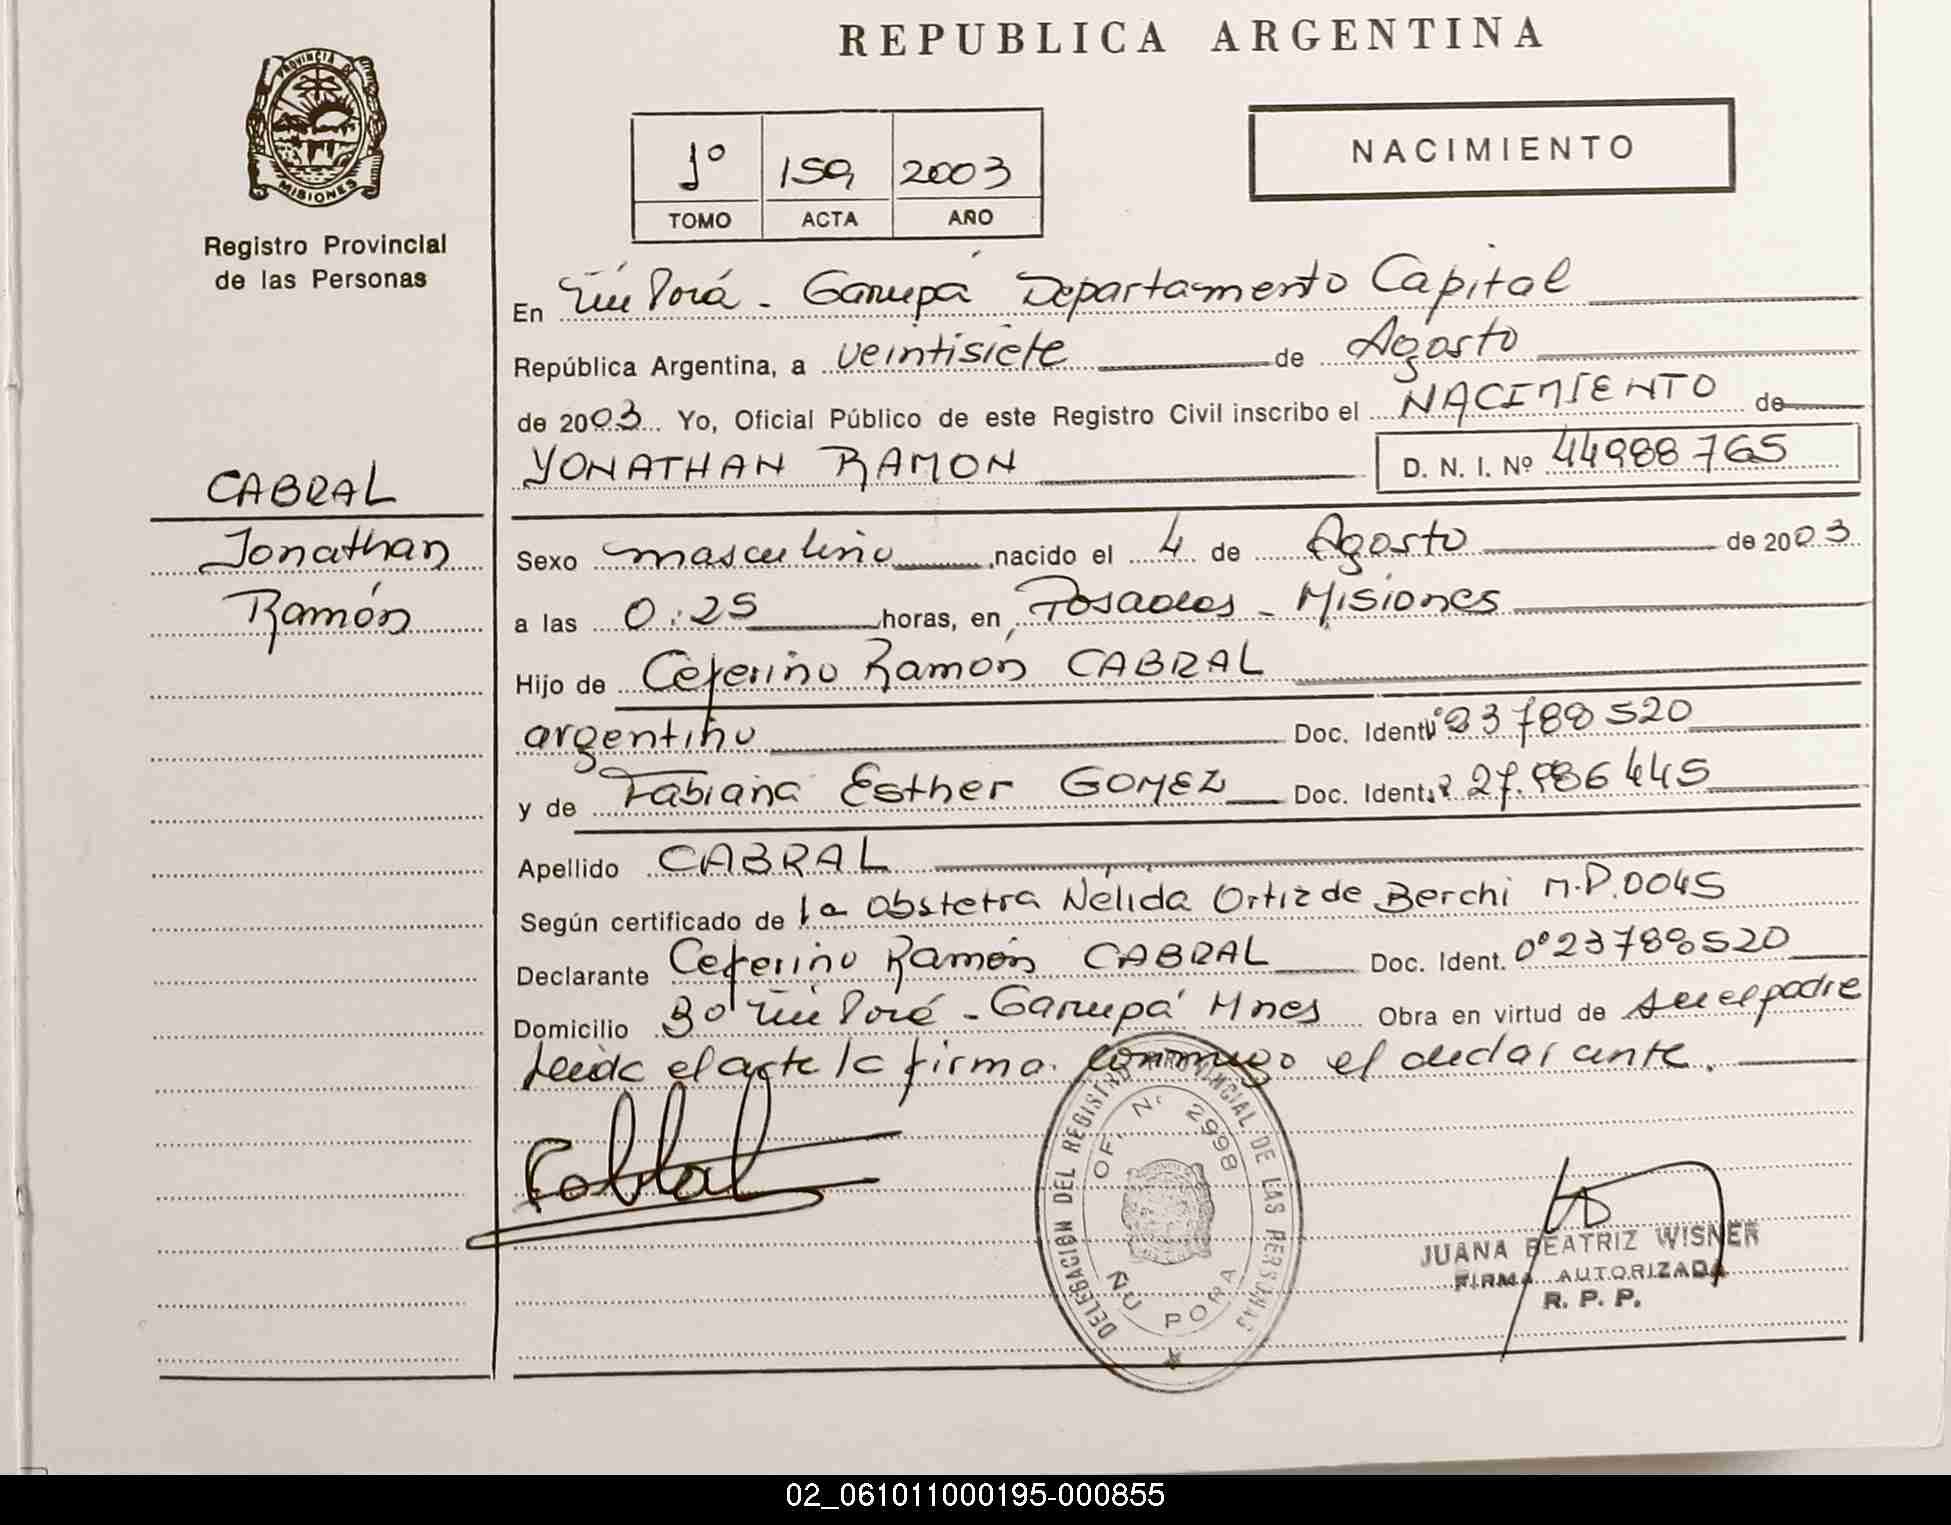 REPUBLICA ARGENTINA
PROVINCIA DE
MISIONES
Registro Provincial
de las Personas
1º 159 2003
TOMO ACTA AÑO
NACIMIENTO
En Ñu Porá - Garupá Departamento Capital
República Argentina, a veintisiete de Agosto
de 2003 Yo, Oficial Público de este Registro Civil inscribo el NACIMIENTO de
YONATHAN RAMON D. N. I. Nº 44988765
CABRAL
Jonathan
Ramón
Sexo masculino, nacido el 4 de Agosto de 2003
a las 0:25 horas, en Posadas - Misiones
Hijo de Ceferino Ramón CABRAL
argentino Doc. Ident. 23788520
y de Fabiana Esther GOMEZ Doc. Ident. 27.986445
Apellido CABRAL
Según certificado de la obstetra Nélida Ortiz de Berchi M.P.0045
Declarante Ceferino Ramón CABRAL Doc. Ident. 23788520
Domicilio Bº Ñu Porá - Garupá Mnes Obra en virtud de ser el padre
Leída el acta la firma conmigo el declarante.
Cabral
DELEGACION DEL REGISTRO PROVINCIAL DE LAS PERSONAS
OF. Nº 2998
ÑU PORA
JUANA BEATRIZ WISNER
FIRMA AUTORIZADA
R. P. P.
02_061011000195-000855